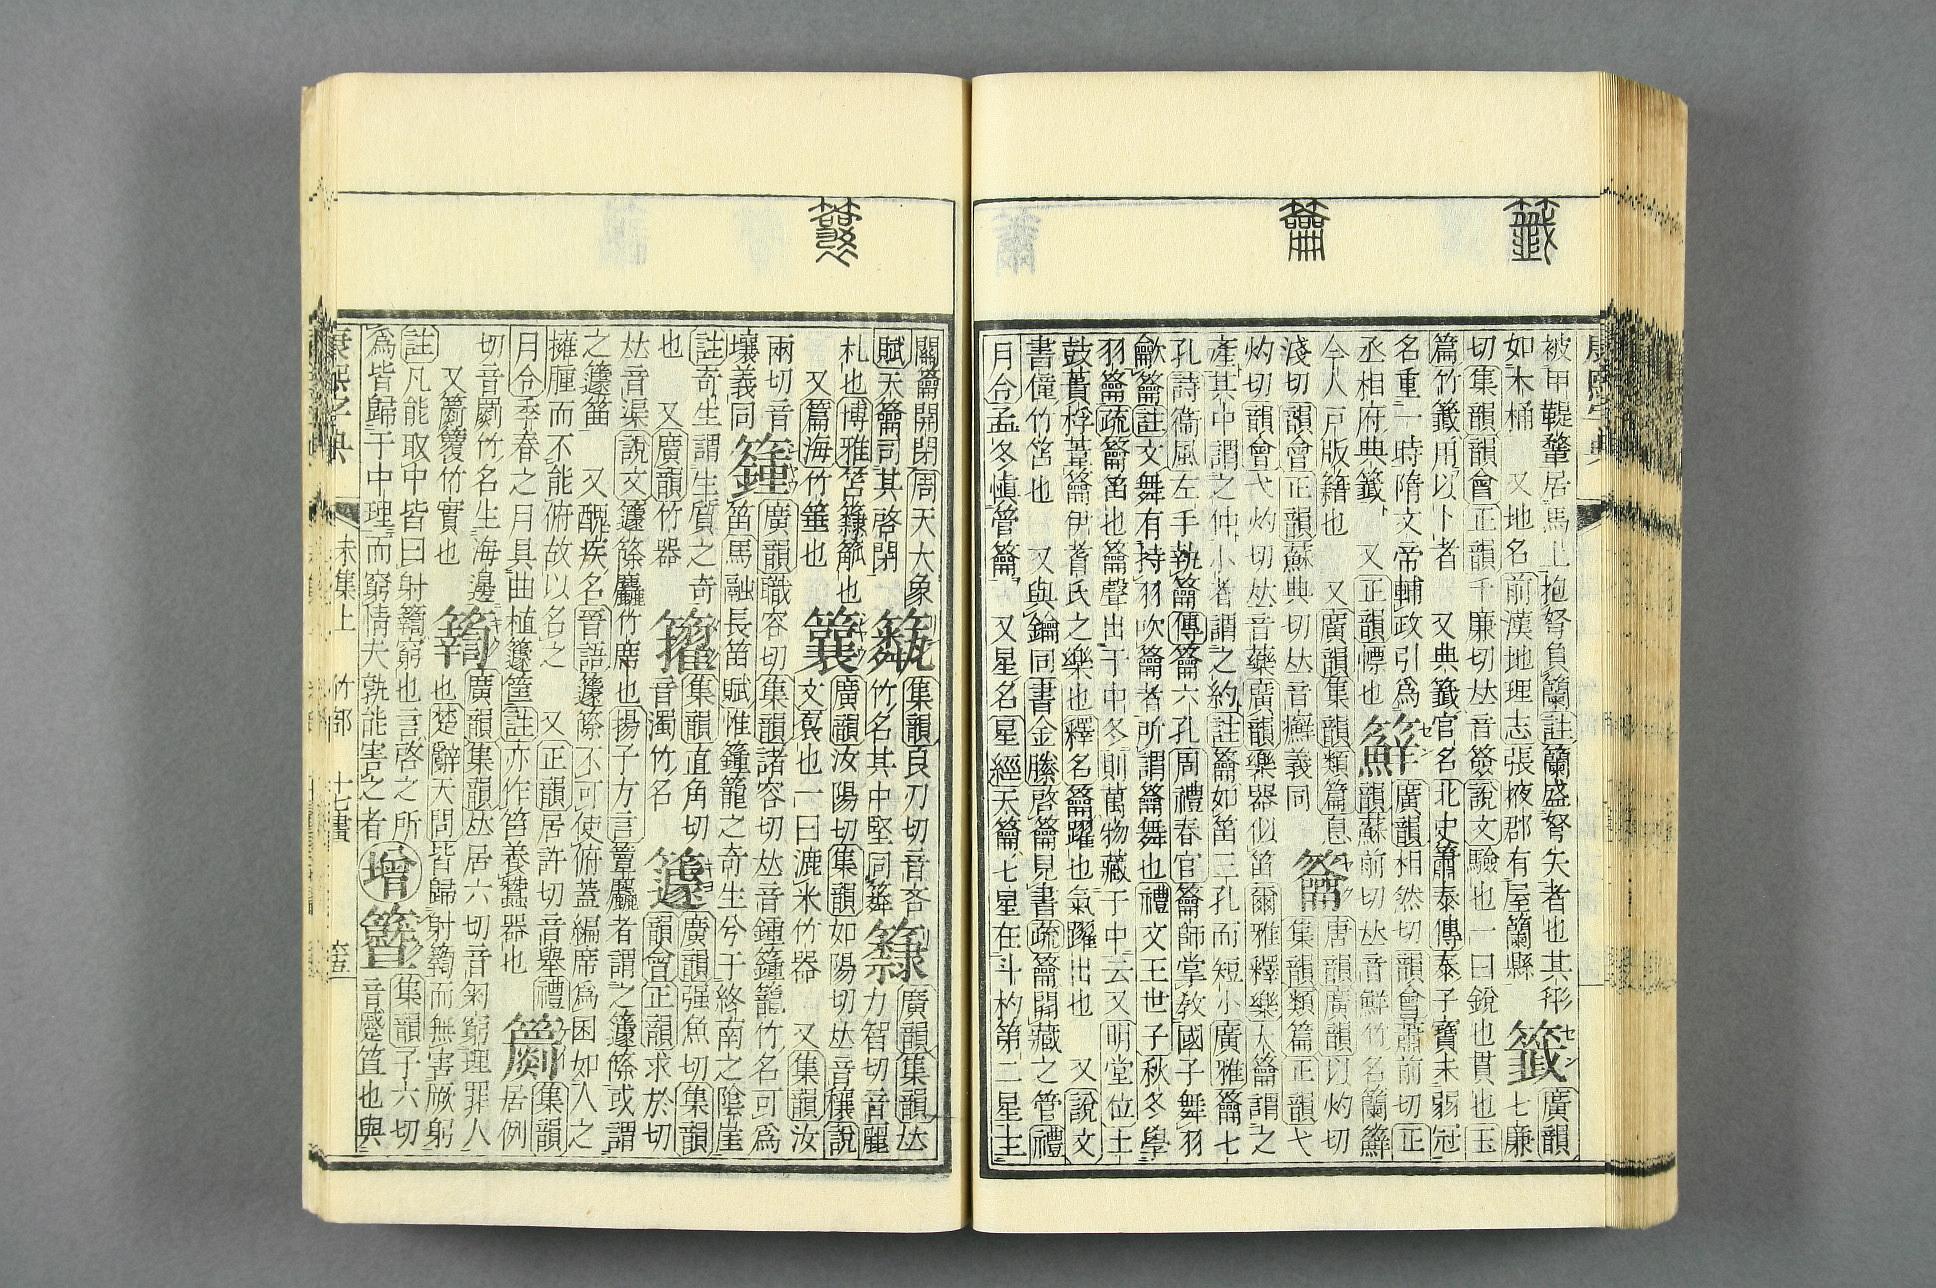 被甲鞮鞪居馬上抱弩負籣註籣盛弩矢者也其形
如木桶 又地名前漢地理志張掖郡有屋籣縣
籤 セン
廣韻
七廉
切集韻韻會正韻千廉切𠀤音僉說文驗也一曰銳也貫也玉
篇竹籤用以卜者 又典籤官名北史蕭泰傳泰子寶未弱冠
名重一時隋文帝輔政引為
丞相府典籤 又正韻幖也
セン
廣韻相然切韻會蕭前切正
韻蘇前切𠀤音鮮竹名籣
今人戶版籍也 又廣韻集韻類篇息
淺切韻會正韻蘇典切𠀤音癬義同
籥 ヤク
唐韻廣韻以灼切
集韻類篇正韻弋
灼切韻會弋灼切𠀤音藥廣韻樂器似笛爾雅釋樂大籥謂之
產其中謂之仲小者謂之箹註籥如笛三孔而短小廣雅籥七
孔詩衞風左手執籥傳籥六孔周禮春官籥師掌敎國子舞羽
龡籥註文舞有持羽吹籥者所謂籥舞也禮文王世子秋冬學
羽籥疏籥笛也籥聲出于中冬則萬物藏于中云又明堂位土
鼓蕢桴葦籥伊耆氏之樂也釋名籥躍也氣躍出也 又說文
書僮竹笘也 又與鑰同書金縢啓籥見書疏籥開藏之管禮
月令孟冬愼管籥 又星名星經天籥七星在斗杓第二星主
關籥開閉周天大象
賦天籥司其啓閉
集韻良刃切音吝
竹名其中堅同
廣韻集韻𠀤
力智切音麗
札也博雅笘
又篇海竹箠也
廣韻汝陽切集韻如陽切𠀤音穰說
文裏也一曰漉米竹器 又集韻汝
兩切音
壤義同
籦
廣韻職容切集韻諸容切𠀤音鍾籦籠竹名可爲
笛馬融長笛賦惟籦籠之奇生兮于終南之陰崖
註奇生謂生質之奇
也 又廣韻竹器
籗
集韻直角切
音濁竹名
籧
廣韻强魚切集韻
韻會正韻求於切
𠀤音渠說文籧篨麤竹席也揚子方言簟麤者謂之籧篨或謂
之籧筁 又醜疾名晉語籧篨不可使俯蓋編席爲囷如人之
擁腫而不能俯故以名之 又正韻居許切音舉禮
月令季春之月具曲植籧筐註亦作筥養蠶器也
集韻
居例
切音罽竹名生海邊
竹實也
廣韻集韻𠀤居六切音匊窮理罪人
也楚辭天問皆歸射而無害厥躬
註凡能取中皆曰射窮也言啓之所
爲皆歸于中理而窮情夫孰能害之者
增
集韻子六切
音蹙笡也與
康熙字典 未集上 竹部 十七畫